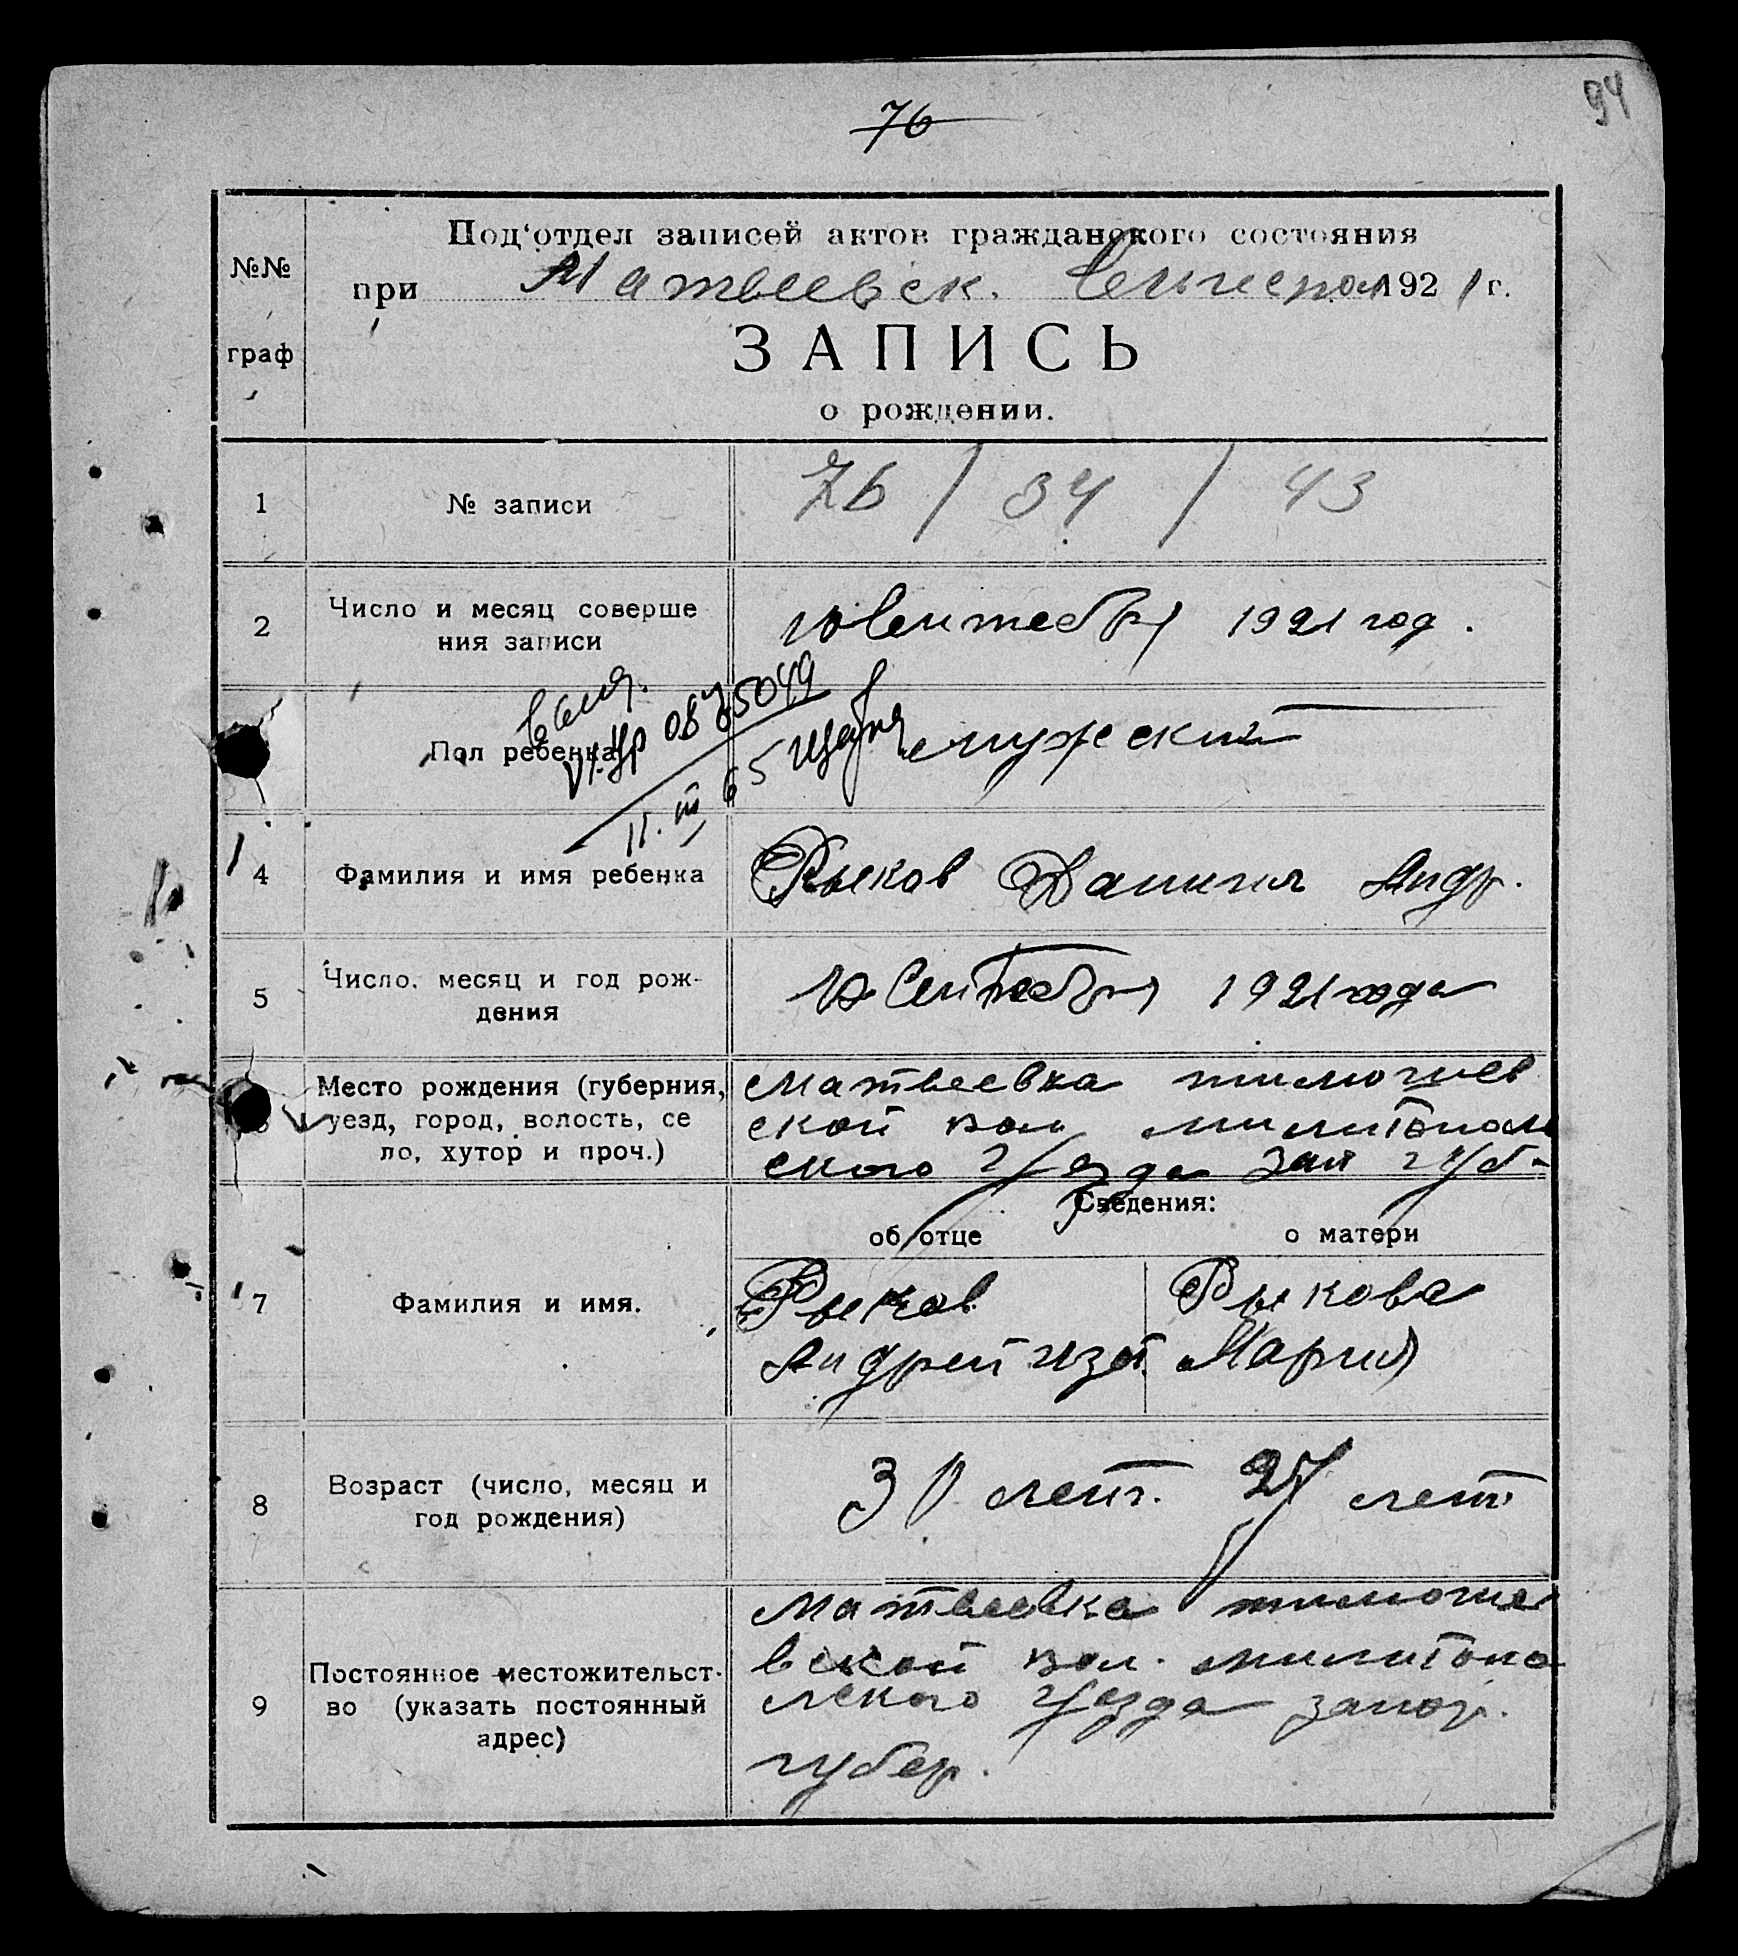 94
76
Под'отдел записей актов гражданского состояния
№№ граф
при Матвеевск. 1921 г.
ЗАПИСЬ
о рождении.
1 № записи 76 / 34 / 43
2 Число и месяц соверше
ния записи
10 Сентебря 1921 год.
Пол ребенка мужеский
выд.
0875049
11. III 65
4 Фамилия и имя ребенка Рыков Даниил Андр.
5 Число, месяц и год рож-
дения
10 Сентебря 1921 года
Место рождения (губерния,
уезд, город, волость, се
ло, хутор и проч.)
Матвеевка тимошев
ской вол милитополь
ского уезда Зап губ.
Сведения:
об отце о матери
7 Фамилия и имя.
Рыков Рыкова
Андрей Мария
8 Возраст (число, месяц и
год рождения)
30 лет. 27 лет
9 Постоянное местожительст-
во (указать постоянный
адрес)
Матвеевка тимоше
вской вол. милитопо
лского уезда запор.
губер.